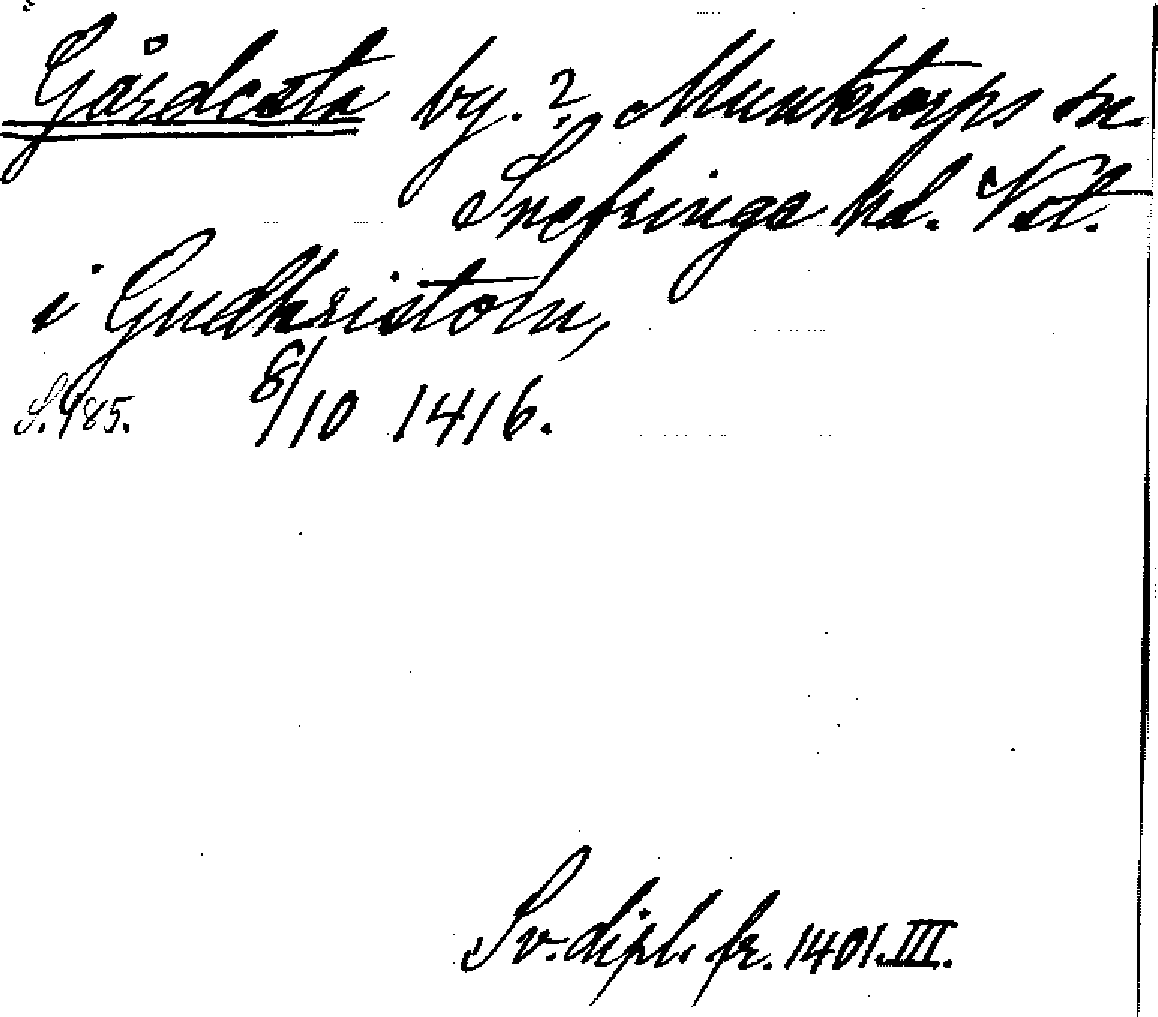 Gårdcsta by.? Munktorps sn
Snefringe hd. Vstl.
i Gudhristom,
S. 185. 8/10 1416.
Sv. dipl. fr. 1401. III.